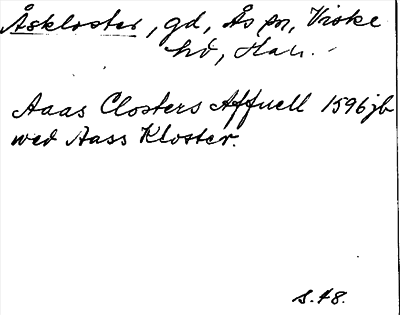 Åskloster, gd, Ås sn, Viske
hd, Hall.
Aaas Closters Affuell 1596 jb
wed Aass Kloster.
s. 48.